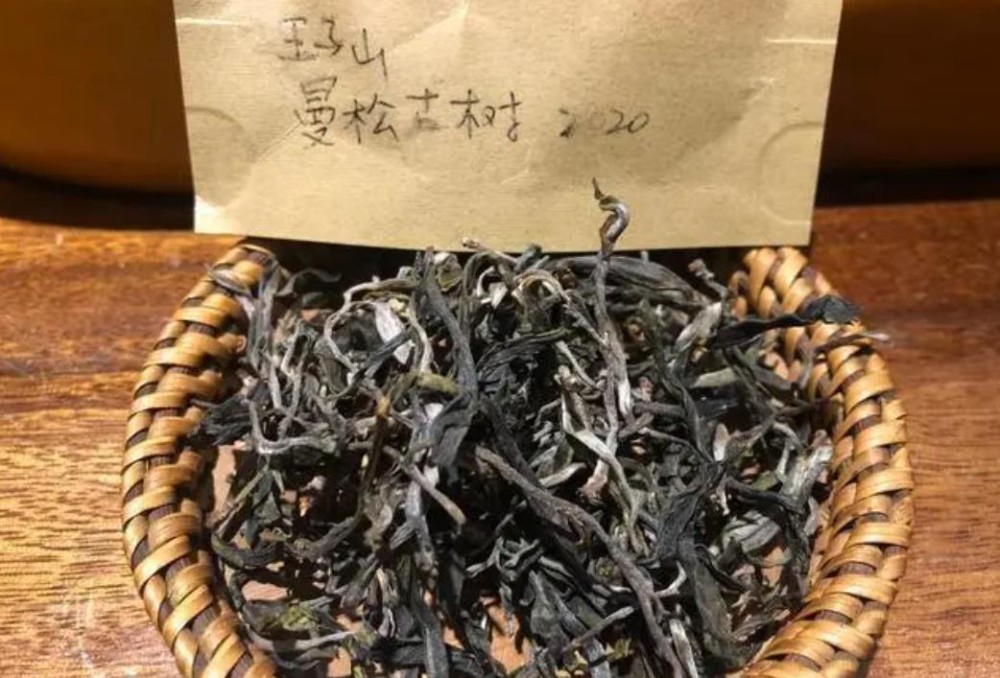 王子山
曼松古树 2020